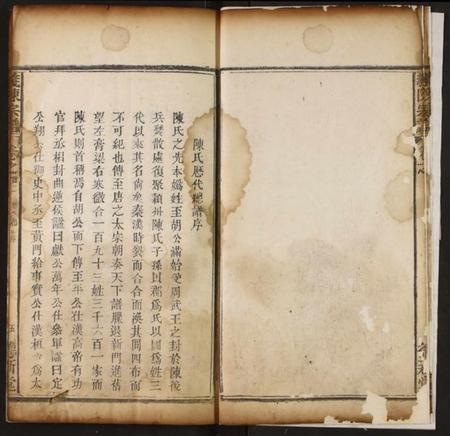 陳氏歷代總譜序
陳氏之先本媯姓至胡公滿始受周武王之封於陳後
兵燹散處復聚潁州陳氏子孫以爲氏以國爲姓三
代以來其名尚矣秦漢時發而合合而渙其間四布而
不可紀也傳至唐之太宗朝奏天下譜牒退新門進舊
望左膏粱右寒微合一百九十三姓三千六百一家而
陳氏則首稱焉自胡公而下傳至平公仕漢高帝有功
官拜丞相封曲逆侯諡曰獻公萬年公仕參軍諡曰定
丞翔公仕御史中丞至黃門給事實公仕漢桓帝爲太
義陳宗譜
五